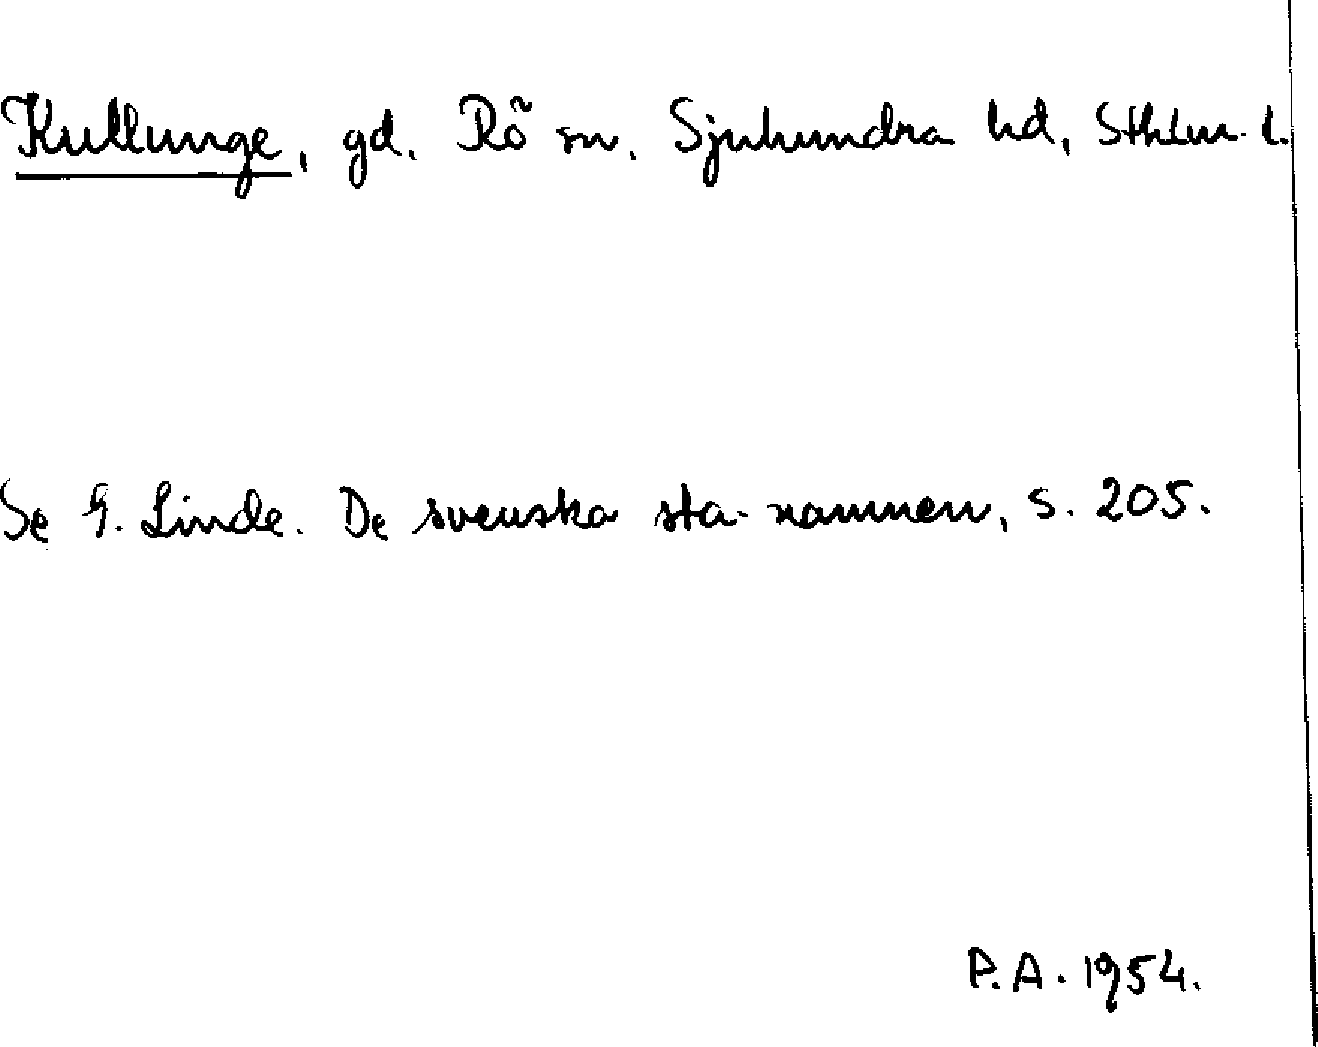 Kullunge, gd. Rö sn. Sjuhundra hd, Sthlm. l.
Se G. Linde. De svenska sta-namnen, s. 205.
P.A. 1954.